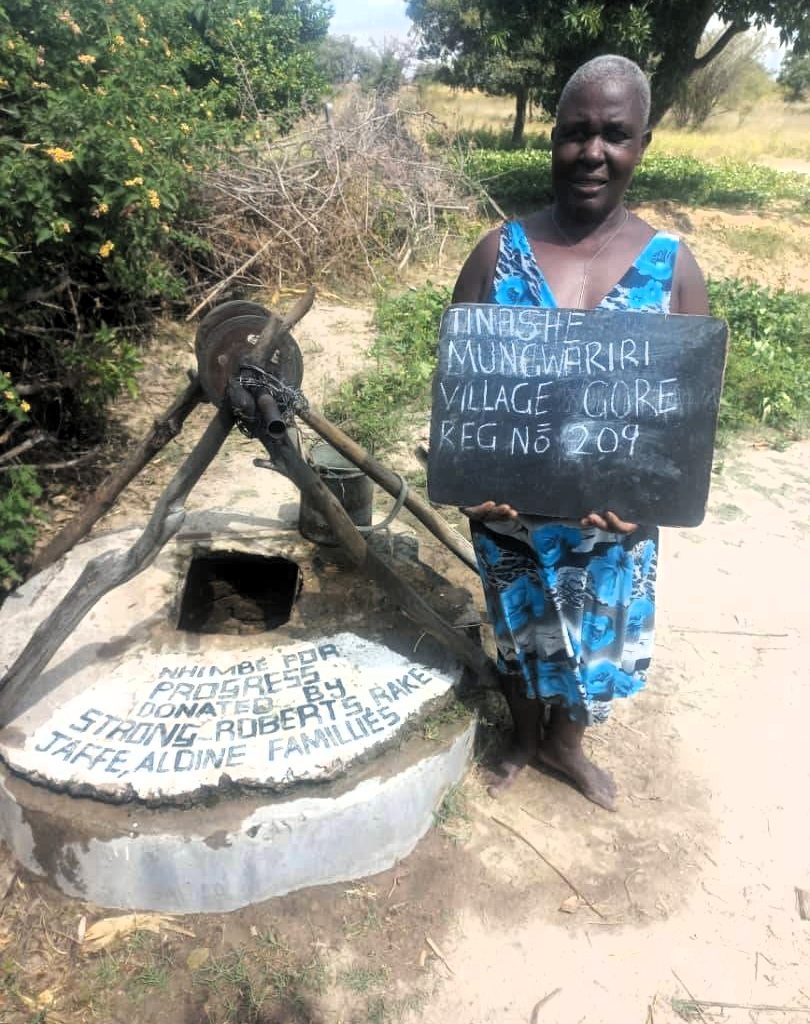 TINASHE
MUNGWARIRI
VILLAGE GORE
REG Nō 209
NHIMBE FOR
PROGRESS
DONATED BY
STRONG-ROBERTS, RAKE
JAFFE, ALDINE FAMILLIES